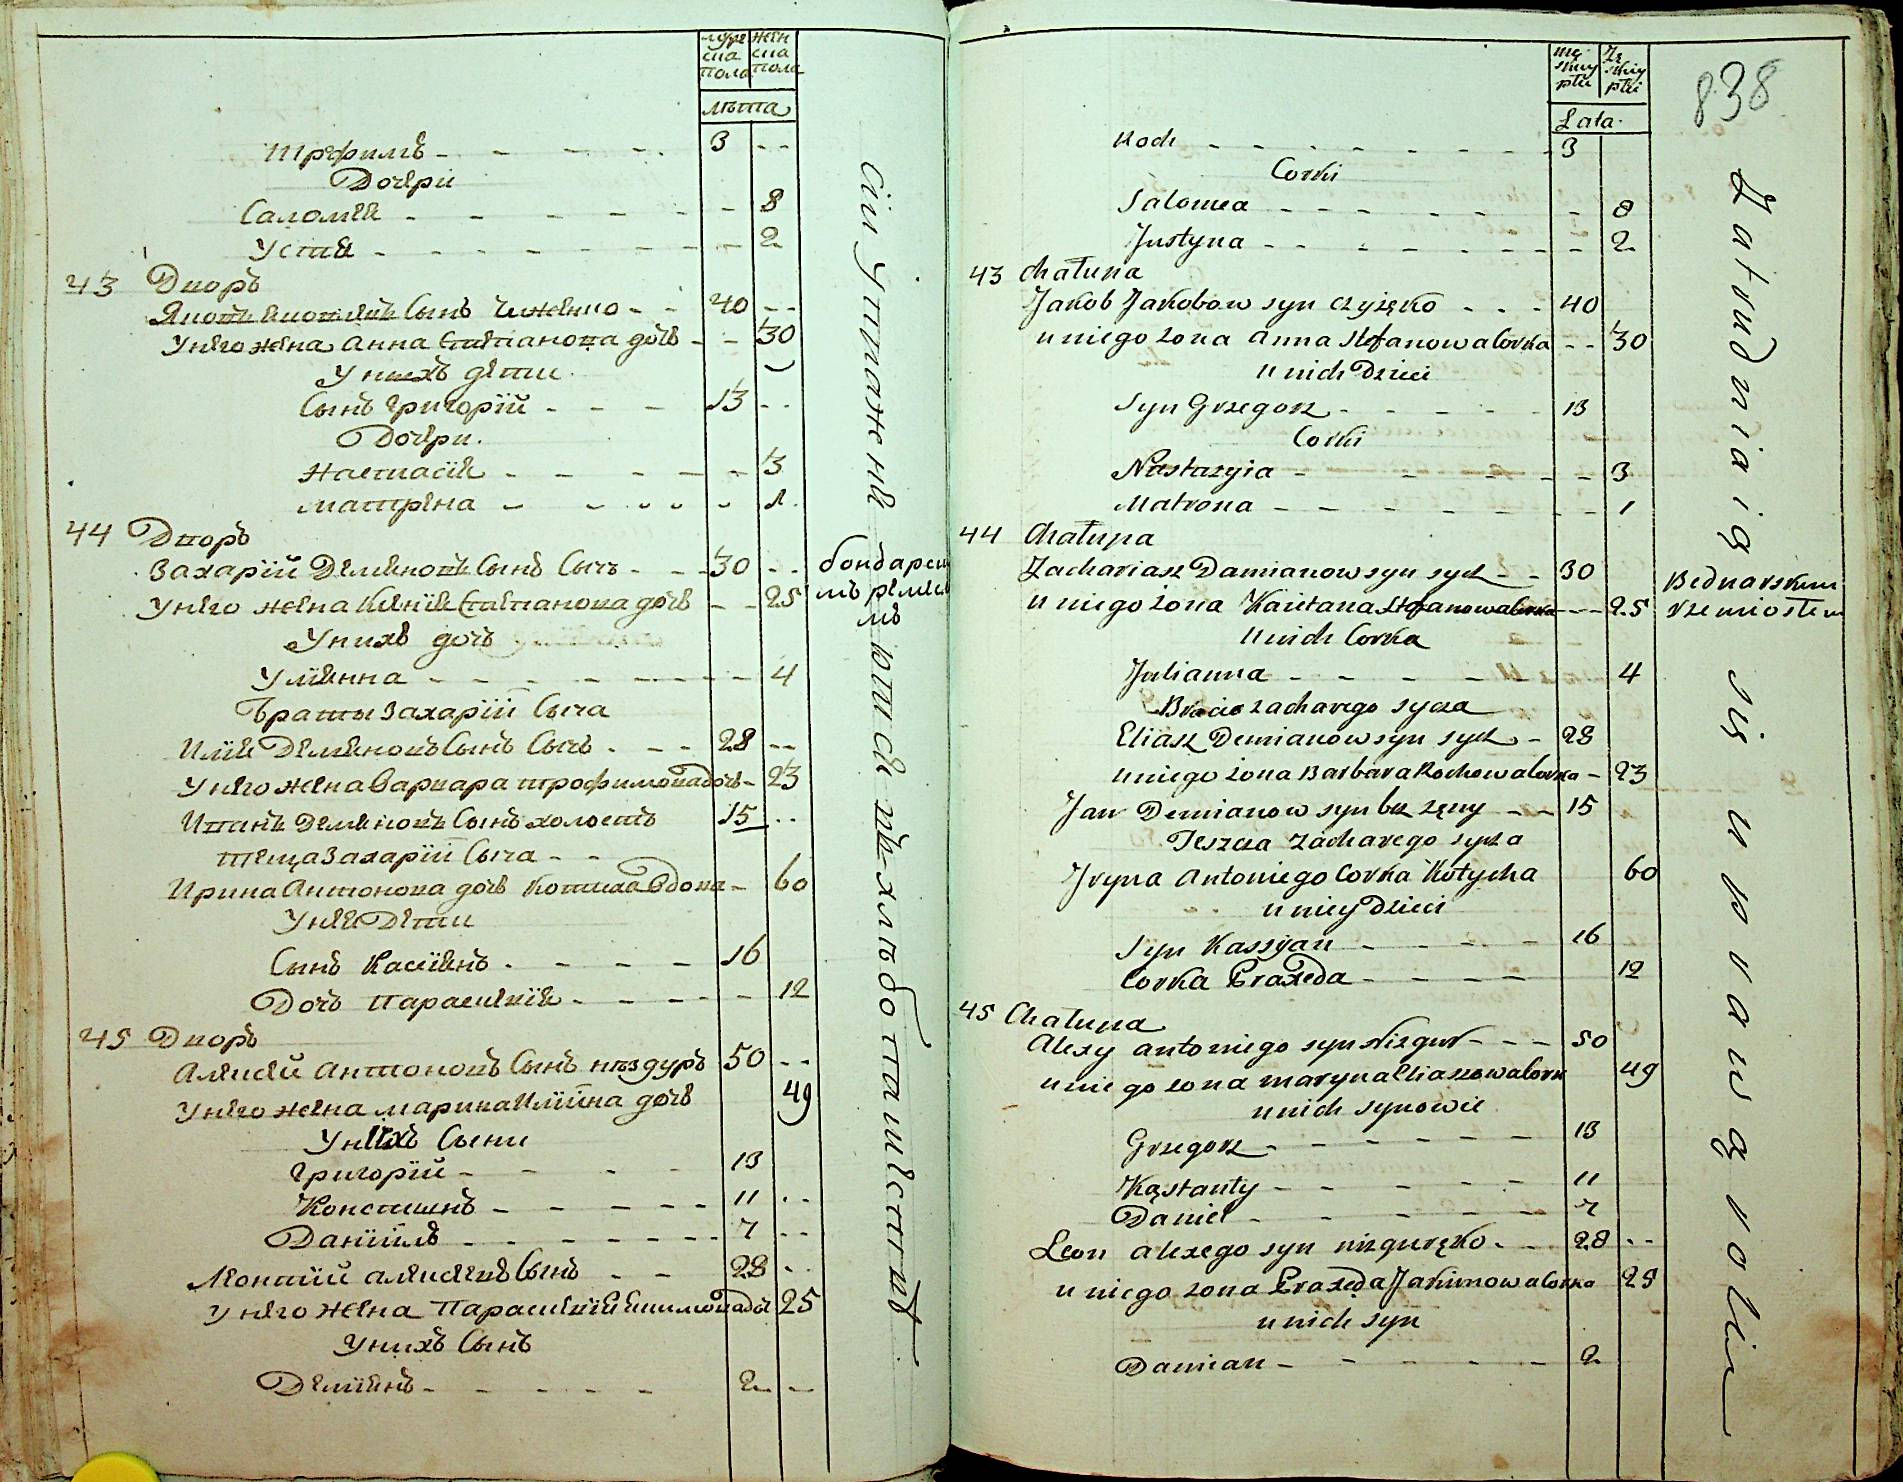 муже
ска
пола
жен
ска
пола
лѣта
Трофимъ - - - - - 3 - -
Дочери
Саломея - - - - - - - 8
Устия - - - - - - - - 2
43 Дворъ
Яковъ Яковлевъ Сынъ Чижевко - - 40 - -
У него жена Анна Степанова дочъ - - 30
У нихъ дети
Сынъ Григорій - - - 13 - -
Дочери.
Настасія - - - - - - 3
Матрена - - - - - - 1
44 Дворъ
Захарій Демяновъ Сынъ Сычъ - - 30 - -
У него жена Степанова дочъ - - 25
бондарски
мъ ремесло
мъ
У нихъ дочъ
Улияна - - - - - - - 4
Браты Захарія Сыча
Илия Демяновъ Сынъ Сычъ - - - 28 - -
У него жена Варвара Трофимова дочъ - 23
Иванъ Демяновъ Сынъ холостъ 15 - -
Теща Захарія Сыча - -
Ирина Антонова дочъ Котиха вдова - 60
У неи Дети
Сынъ Касиянъ - - - - - 16
Дочъ Параскевія - - - - - 12
45 Дворъ
Алексей Антоновъ Сынъ Низгуръ 50 - -
У него жена Марина Илиина дочъ 49
У нихъ Сыни
Григорій - - - - 13
Констянъ - - - - - 11 - -
Даниилъ - - - - - - 7 - -
Леонтий Алексеевъ Сынъ - - 28 - -
У него жена Параскевія Екимова доч 25
У нихъ Сынъ
Демиянъ - - - - - 2 - -
Сіи упражняются въ хлебопашествѣ
mę
skiey
płci
Żę
skiey
płci
Lata
838
Roch - - - - - - - - 3
Corki
Salomea - - - - - - - 8
Justyna - - - - - - - 2
43 Chałupa
Jakob Jakobow syn Czyżęko - - - 40
u niego żona Anna Stefanowa Corka - - 30
u nich Dzieci
Syn Grzegorz - - - - - 13
Corki
Nastazyia - - - - - - 3
Matrona - - - - - - - 1
44 Chałupa
Zachariasz Damianow syn Sycz - - 30
u niego żona Kaietana Stefanowa Corka - - - 25
Bednarskim
rzemiosłem
u nich Corka
Julianna - - - - - - 4
Bracia Zacharego Sycza
Eliasz Demianow syn Sycz - 28
u niego żona Barbara Rochowa Corka - 23
Jan Demianow syn bez żęny - - 15
Teszcza Zacharego Sycza
Jryna Antoniego Corka Kotycha 60
u niey Dzieci
Syn Kassyan - - - - - 16
Corka Praxeda - - - - - 12
45 Chałupa
Alexy Antoniego syn Nizgur - - - 50
u niego żona Maryna Eliaszowa Cork 49
u nich synowie
Grzegorz - - - - - - 13
Kąstanty - - - - - - 11
Daniel - - - - - - 7
Leon Alexego syn Nizguręko - - - 28 - -
u niego żona Praxeda Jakimowa Corka 25
u nich syn
Damian - - - - - - 2
Zatrudniaią się uprawą roli